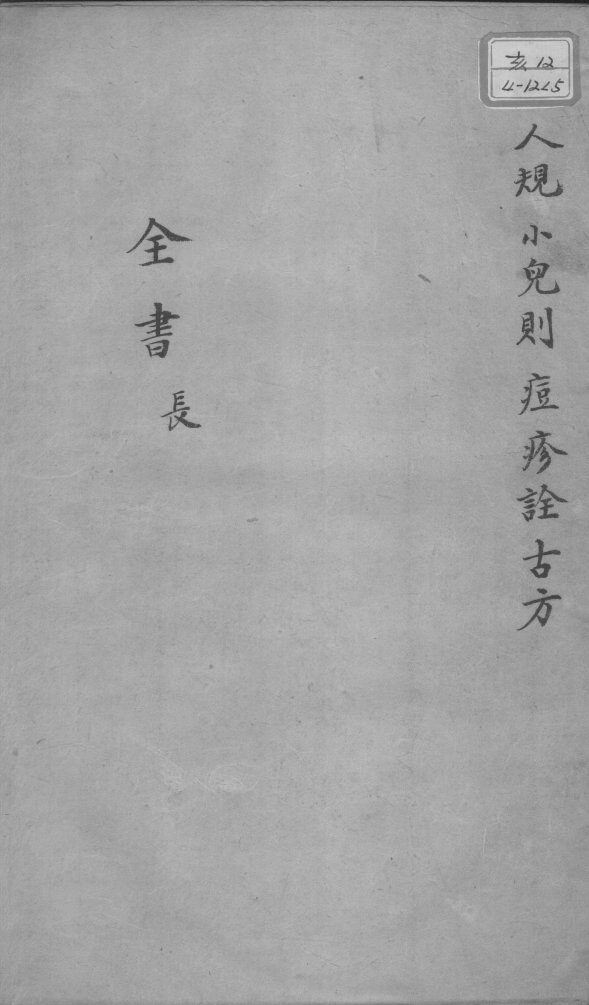 亥 12
4-1245
人規 小兒則 痘疹詮古方
全書 長